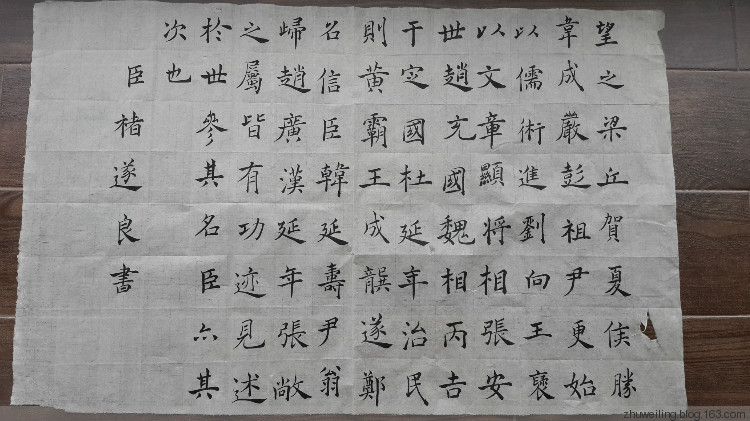 望之梁丘賀夏侯勝
韋成嚴彭祖尹更始
以儒術進劉向王褒
以文章顯將相張安
世趙充國魏相丙吉
于定國杜延年治民
則黃霸王成龔遂鄭
名信臣韓延壽尹翁
歸趙廣漢延年張敞
之屬皆有功迹見述
於世參其名臣亦其
次也
臣褚遂良書
zhuweiling.blog.163.com